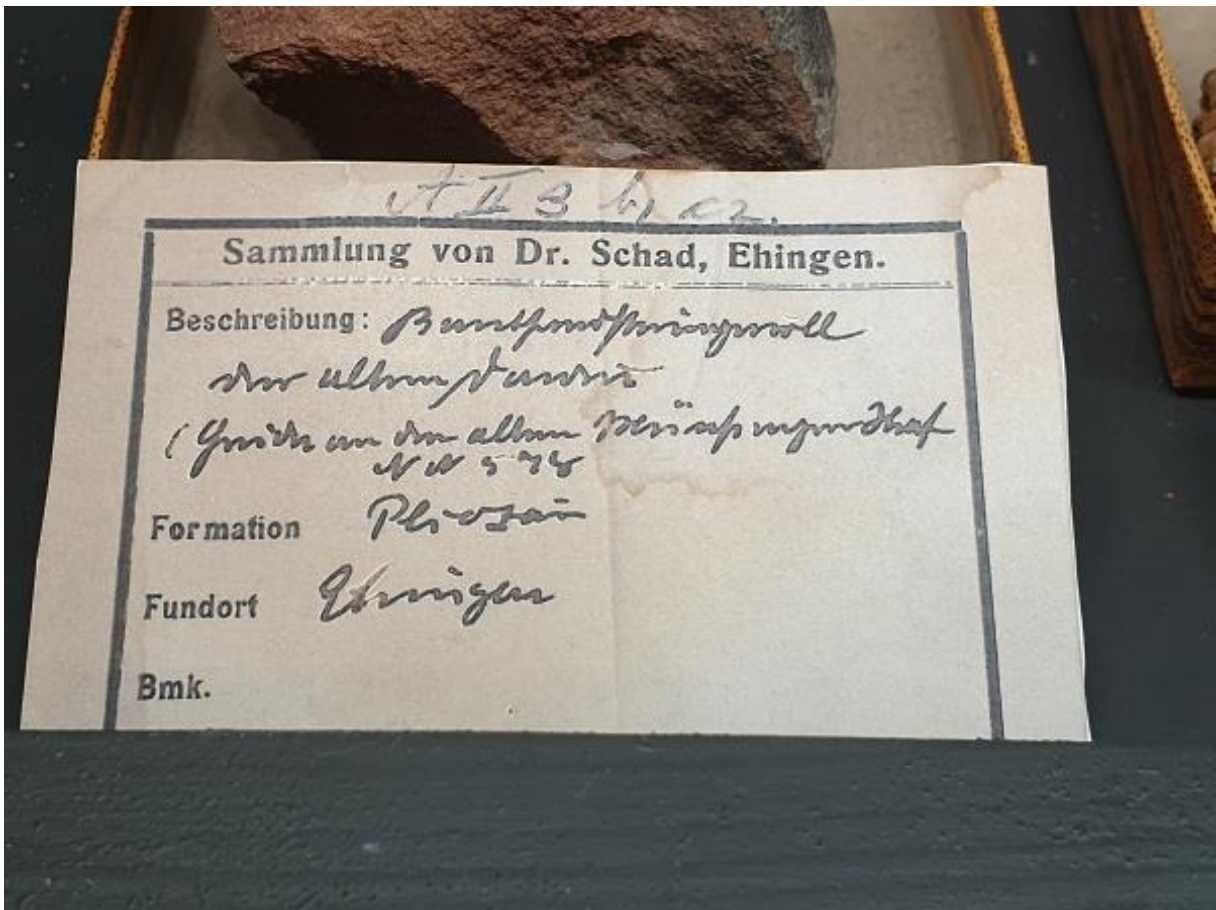 A II 3 b, c2.
Sammlung von Dr. Schad, Ehingen.
Beschreibung: Buntsandsteingeröll
der alten Donau
an der alten
Formation Pliozän
Fundort Ehingen
Bmk.